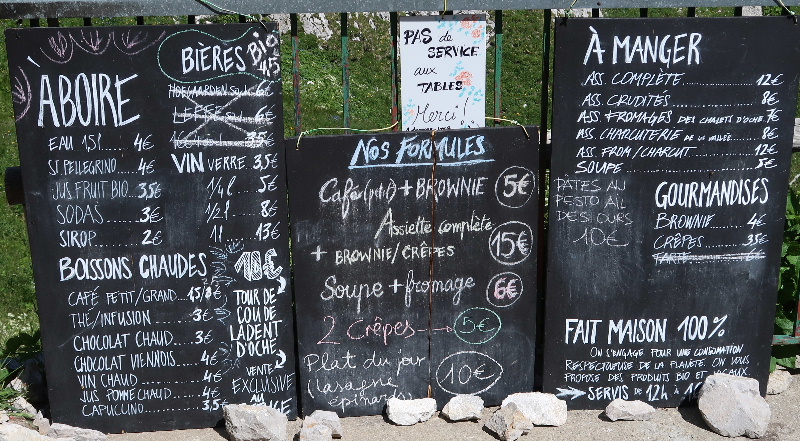 ABOIRE
EAU 1,5l 4€
ST PELLEGRINO 4€
JUS FRUIT BIO 3,5€
SODAS 3€
SIROP 2€
BIÈRES BIO 4,5
HOEGAARDEN
LEFFE
VIN VERRE 3,5€
1/4 l 5€
1/2 l 8€
1l 13€
BOISSONS CHAUDES
CAFÉ PETIT/GRAND
THÉ/INFUSION 3€
CHOCOLAT CHAUD 3€
CHOCOLAT VIENNOIS 4€
VIN CHAUD 4€
JUS POMME CHAUD 4€
CAPUCCINO 3,5€
10€
TOUR DE
COU DE
LA DENT
D'OCHE
VENTE
EXCLUSIVE
AU
PAS de
SERVICE
aux
TABLES
Merci!
NOS FORMULES
Café (ptit) + BROWNIE 5€
Assiette complète
+ BROWNIE/CRÊPES 15€
Soupe + fromage 6€
2 Crêpes 5€
Plat du jour
(lasagne
épinards) 10€
À MANGER
ASS. COMPLÈTE 12€
ASS. CRUDITÉS 8€
ASS. FROMAGES DES CHALETS D'OCHE 7€
ASS. CHARCUTERIE DE LA VALLÉE 8€
ASS. FROM/CHARCUT 12€
SOUPE 5€
PÂTES AU
PESTO AIL
DES OURS
10€
GOURMANDISES
BROWNIE 4€
CRÊPES 3,5€
TARTE
FAIT MAISON 100%
ON S'ENGAGE POUR UNE CONSOMATION
RESPECTUEUSE DE LA PLANÈTE. ON VOUS
PROPOSE DES PRODUITS BIO ET LOCAUX
SERVIS DE 12h À